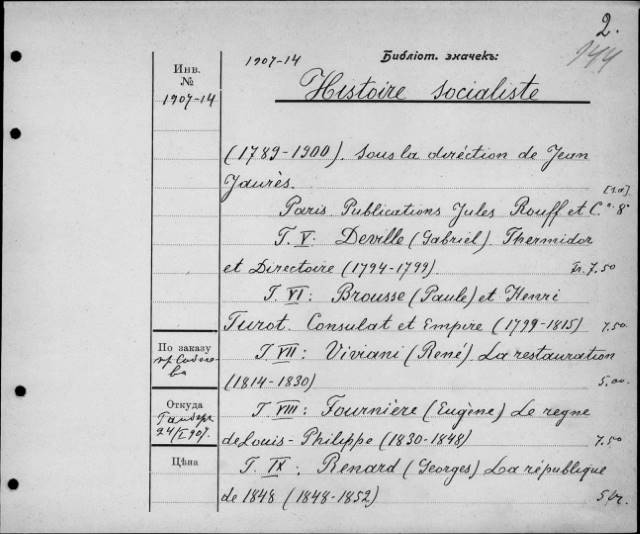 2.
144
Инв.
№
1907-14
1907-14
Библіот. значекъ:
Histoire socialiste
(1789-1900). Sous la diréction de Jean
Jaurès.
[s.a.]
Paris. Publications Jules Rouff et C.º 8º
T. V: Deville (Gabriel). Thermidor
et Directoire (1794-1799). Fr. 7.50
T. VI: Brousse (Paule) et Henri
Turot. Consulat et Empire (1799-1815) 7.50
T. VII: Viviani (René) La restauration
(1814-1830) 5.00.
T. VIII: Fournière (Eugène) Le regne
de Louis-Philippe (1830-1848) 7.50
T. IX: Renard (Georges) La république
de 1848 (1848-1852) 5
По заказу
Откуда
24/I 907.
Цѣна